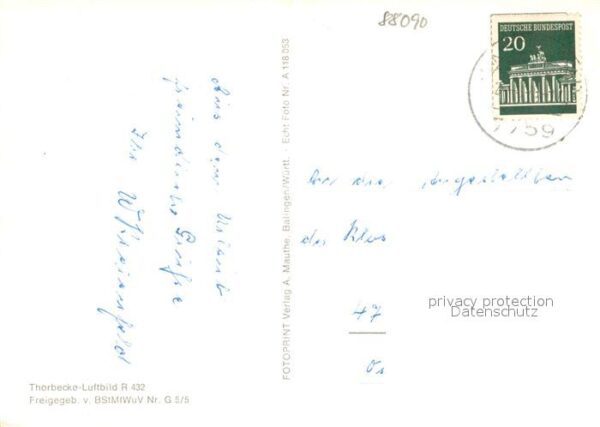 88090
DEUTSCHE BUNDESPOST
20
7759
Aus dem Urlaub
freundliche Grüße
Ihr
FOTOPRINT Verlag A. Mauthe, Balingen/Württ. · Echt Foto Nr. A 118 053
An die Angestellten
der
47
privacy protection
Datenschutz
Thorbecke-Luftbild R 432
Freigegeb. v. BStMIWuV Nr. G 5/5